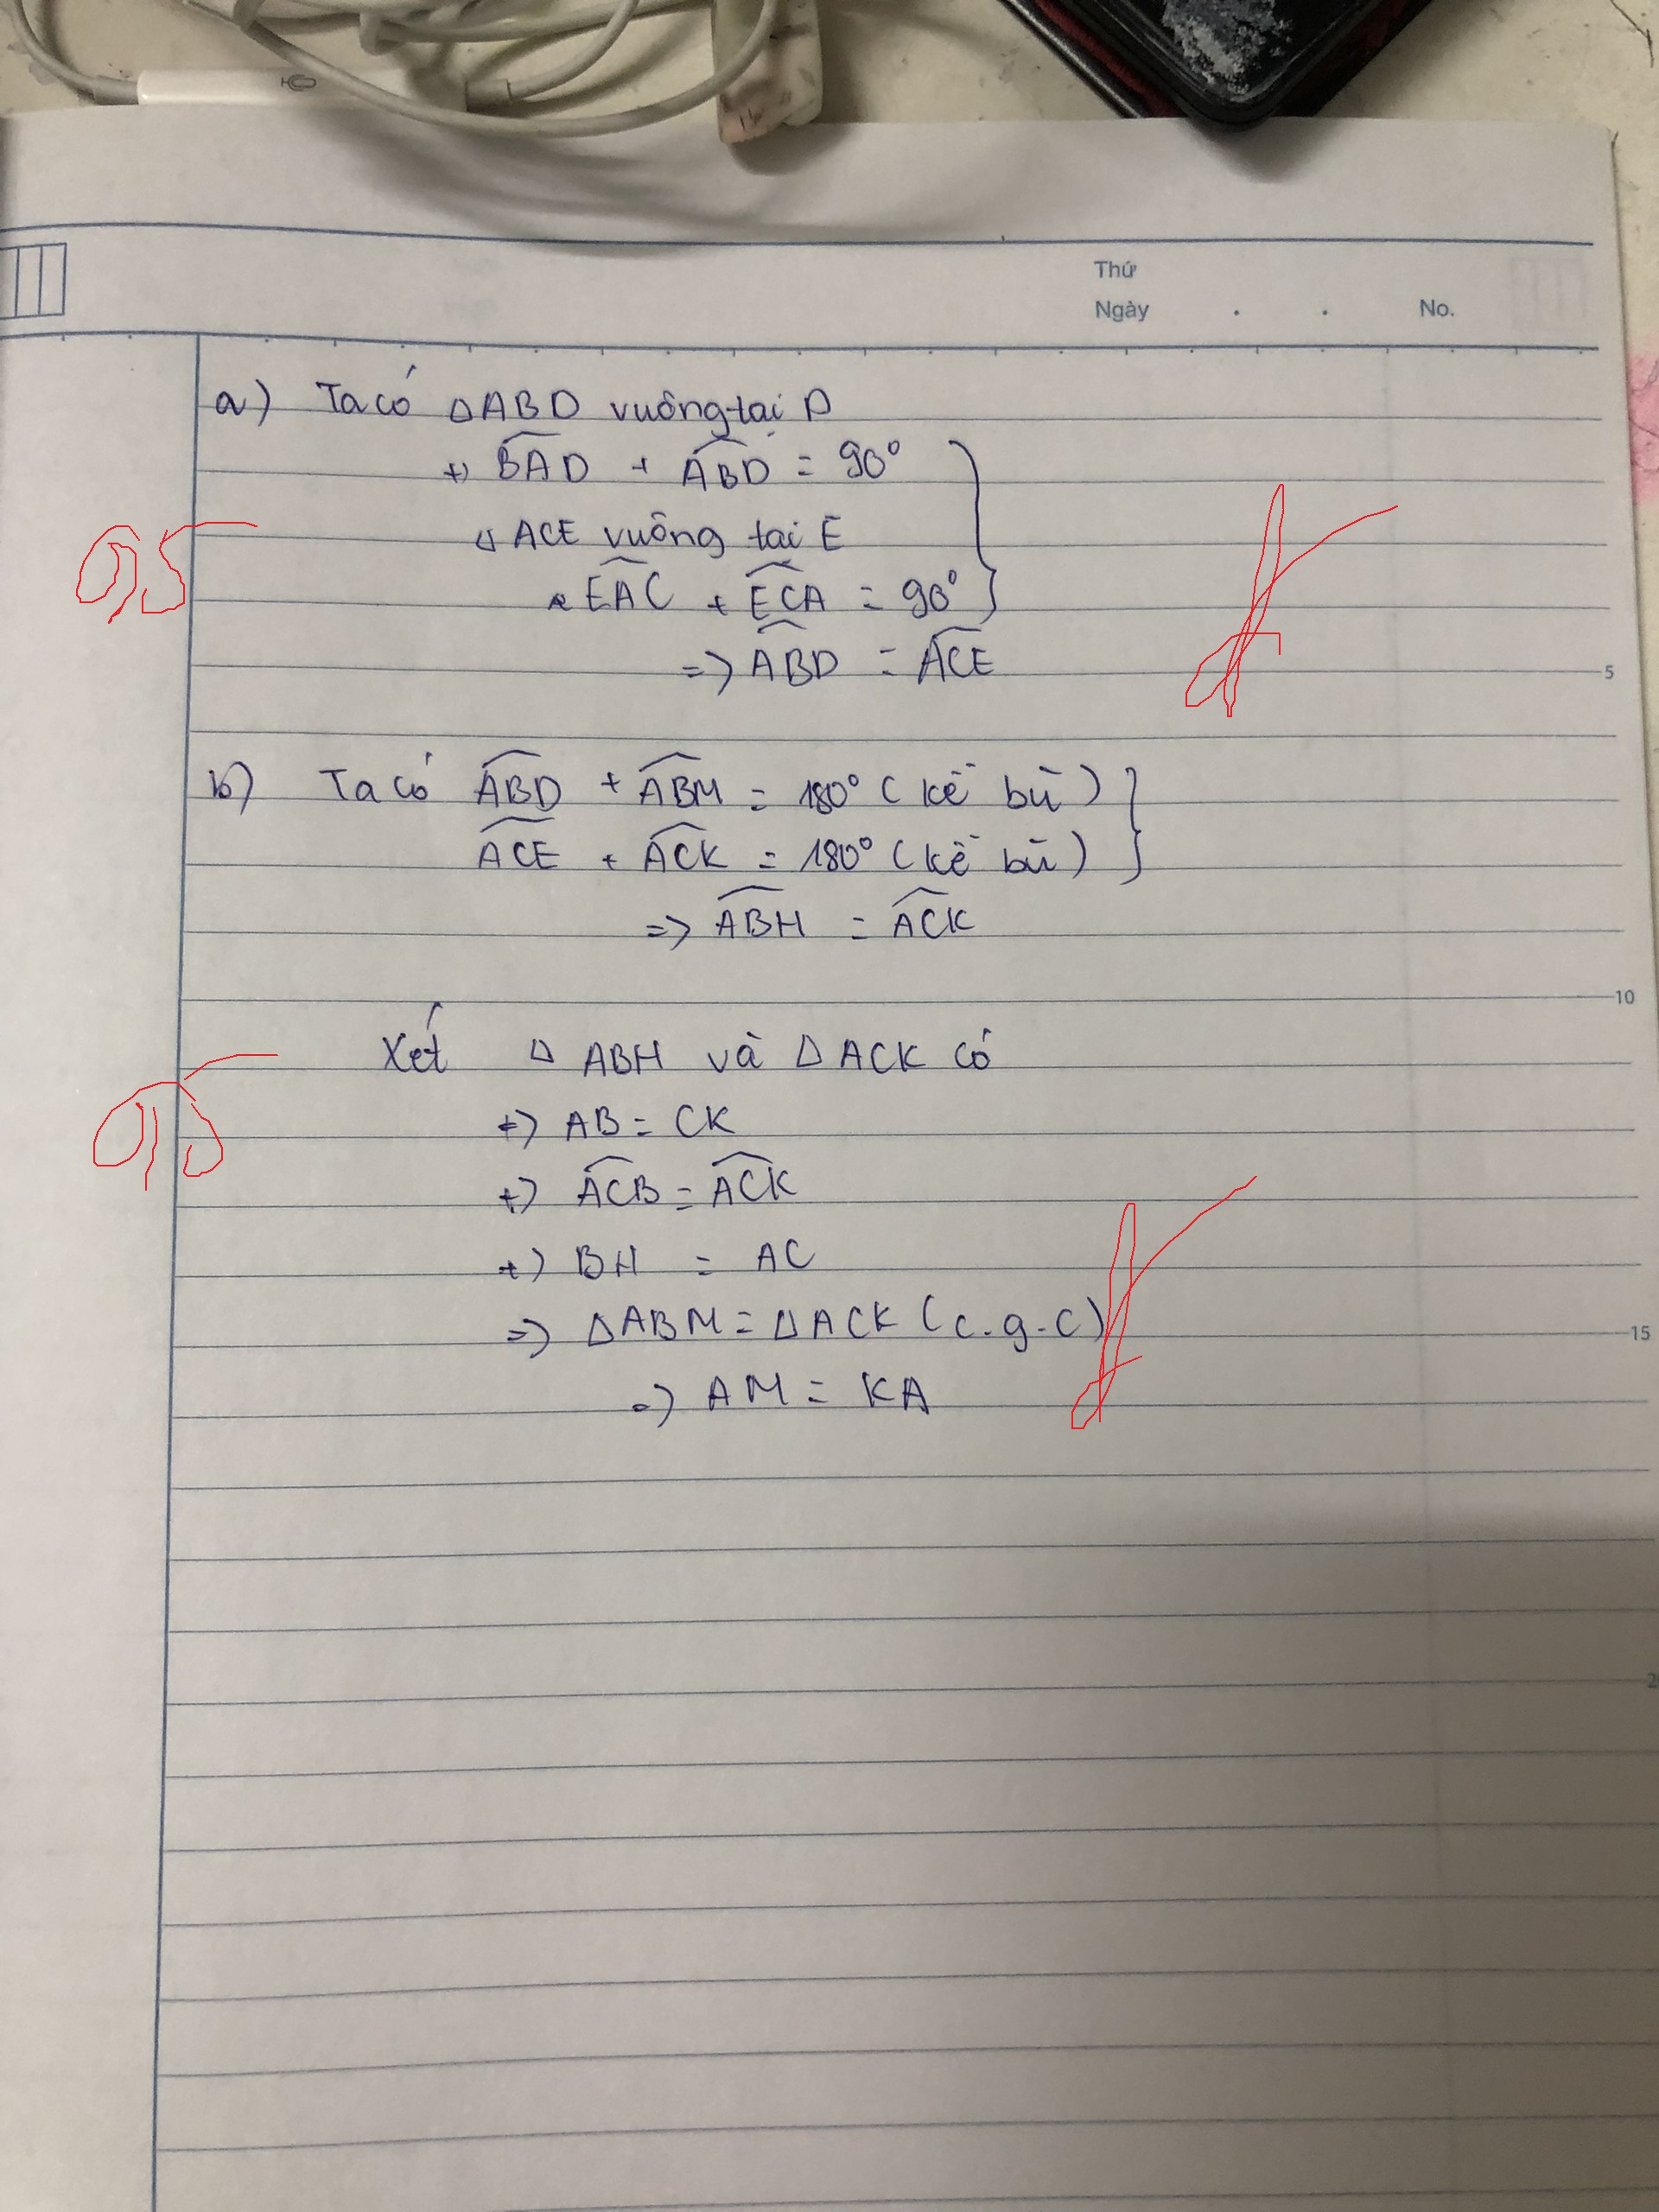 Thứ
Ngày . . No.
a) Ta có △ABD vuông tại D
+) BAD + ABD = 90°
△ ACE vuông tại E
EAC + ECA = 90°
=> ABD = ACE
5
0,5
b) Ta có ABD + ABM = 180° (kề bù)
ACE + ACK = 180° (kề bù)
=> ABH = ACK
10
Xét △ ABH và △ ACK có
+) AB = CK
+) ACB = ACK
+) BH = AC
=> △ABM = △ACK (c.g.c)
15
=> AM = KA